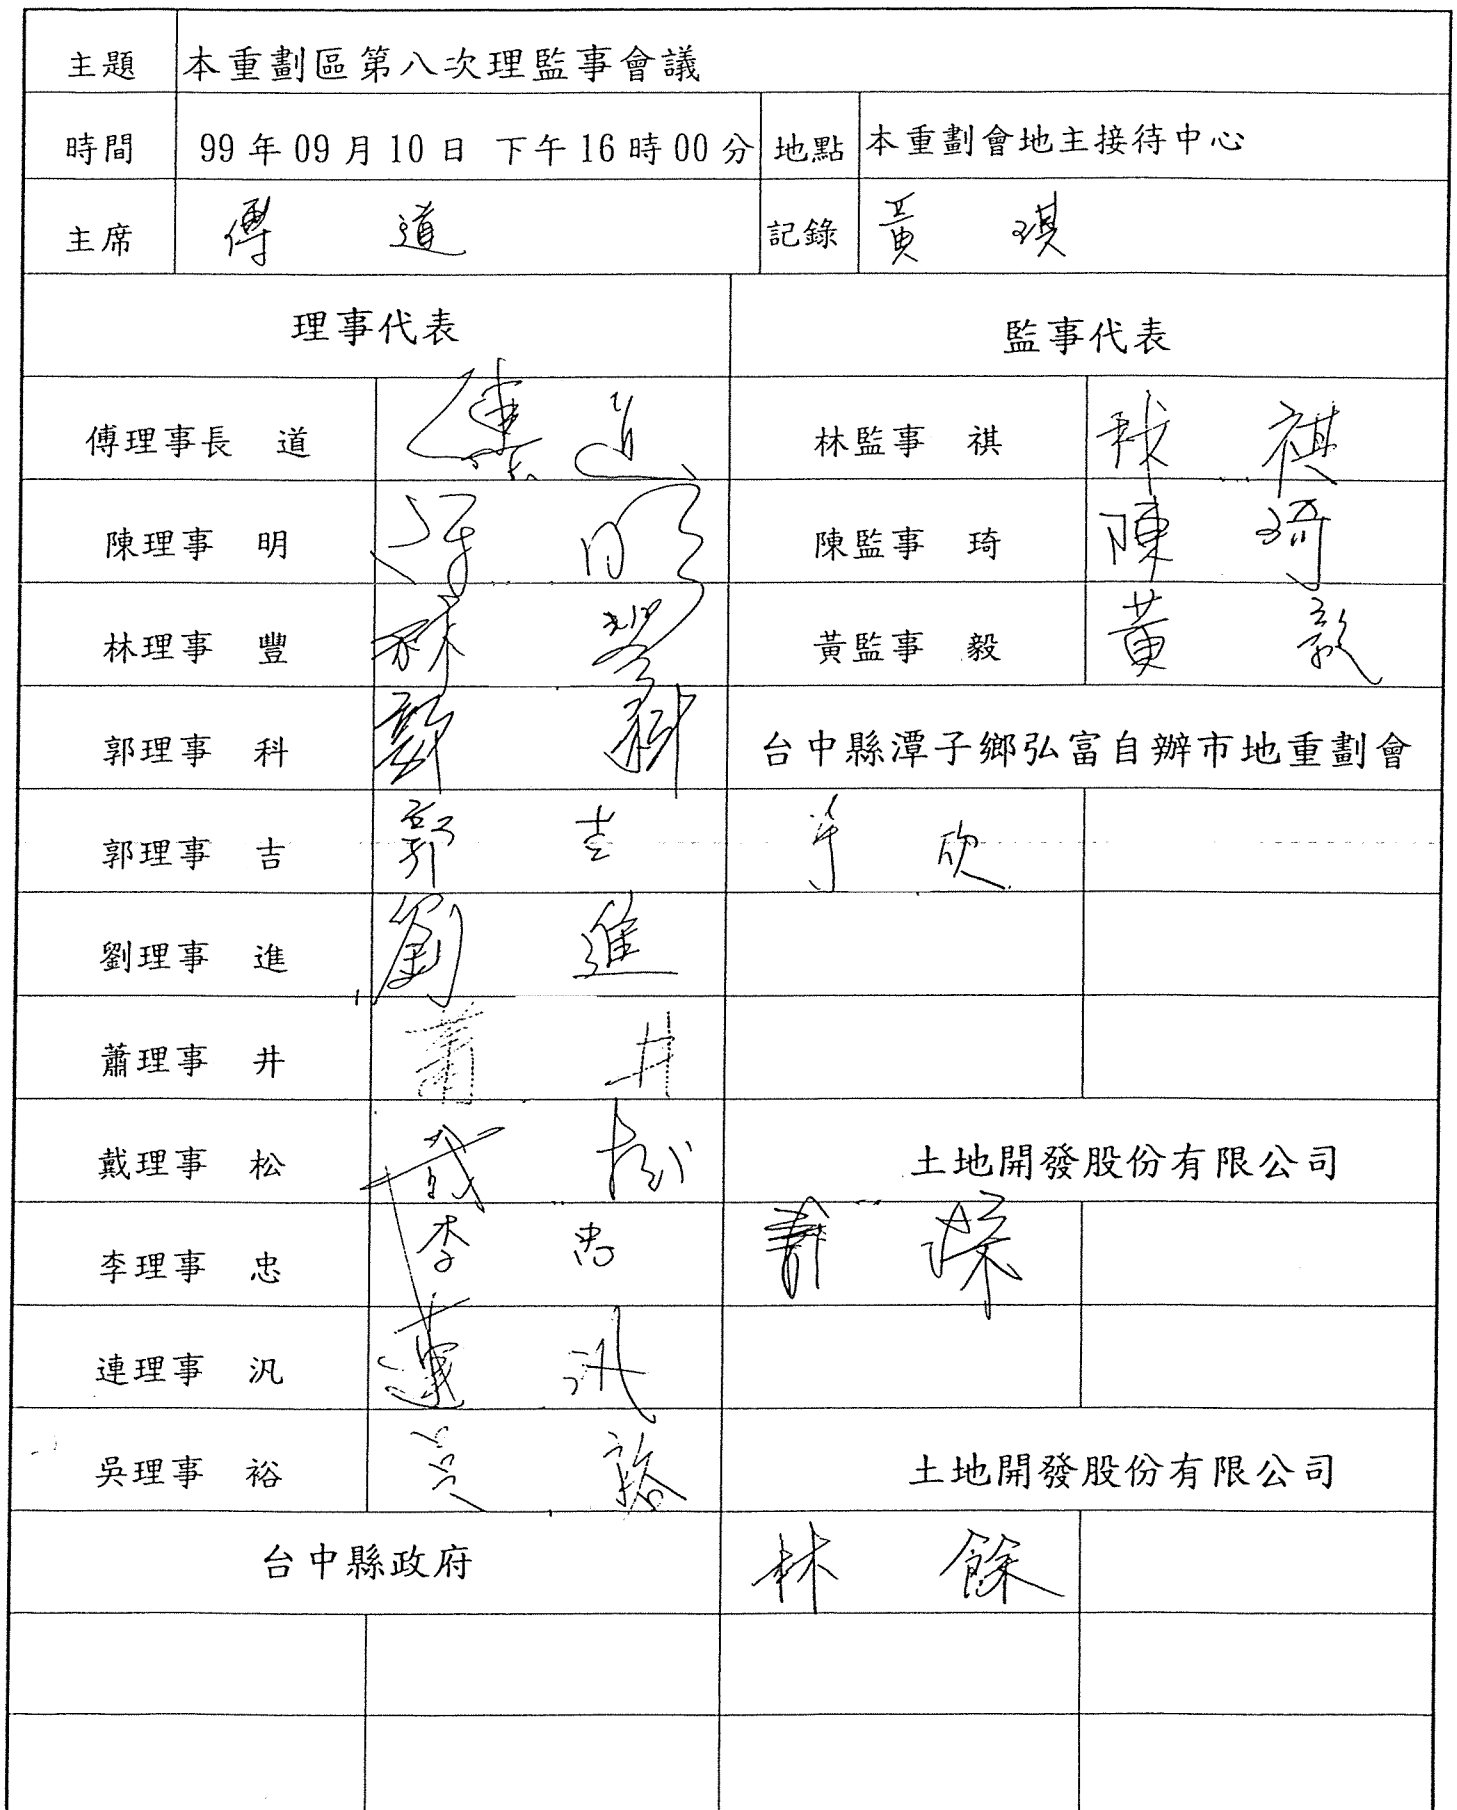 主題 本重劃區第八次理監事會議
時間 99年09月10日 下午16時00分 地點 本重劃會地主接待中心
主席 傅 道 記錄 黃 琪
理事代表 監事代表
傅理事長 道 傅 道 林監事 祺 林 祺
陳理事 明 陳 明 陳監事 琦 陳 琦
林理事 豐 林 豐 黃監事 毅 黃 毅
郭理事 科 郭 科 台中縣潭子鄉弘富自辦市地重劃會
郭理事 吉 郭 吉
劉理事 進 劉 進
蕭理事 井 蕭 井
戴理事 松 戴 松 土地開發股份有限公司
李理事 忠 李 忠
連理事 汎 連 汎
吳理事 裕 吳 裕 土地開發股份有限公司
台中縣政府 林 餘